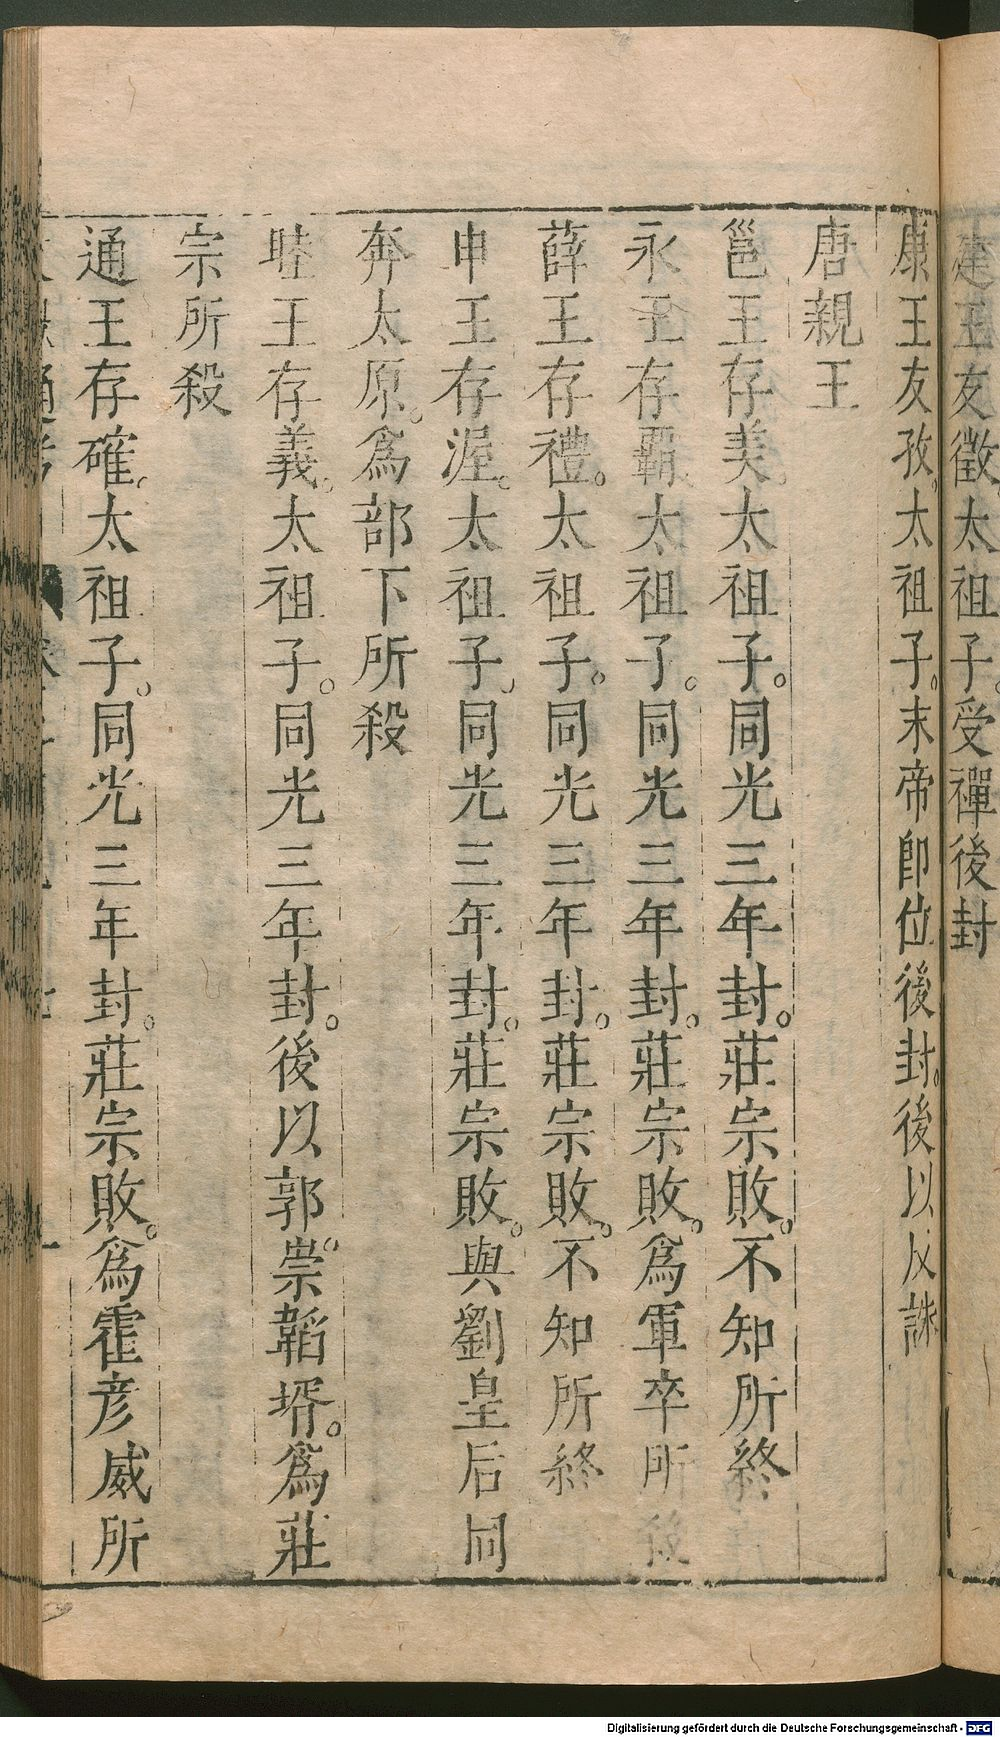 建王友徽太祖子。受禪後封
康王友孜。太祖子。末帝即位後封。後以反誅
唐親王
邕王存美。太祖子。同光三年封。莊宗敗。不知所終
永王存霸太祖子。同光三年封。莊宗敗。為軍卒所
薛王存禮。太祖子。同光三年封。莊宗敗。不知所終
申王存渥。太祖子。同光三年封。莊宗敗。與劉皇后同
奔太原。為部下所殺
睦王存義。太祖子。同光三年封。後以郭崇韜壻。為莊
宗所殺
通王存確。太祖子。同光三年封。莊宗敗。為霍彥威所
Digitalisierung gefördert durch die Deutsche Forschungsgemeinschaft - DFG